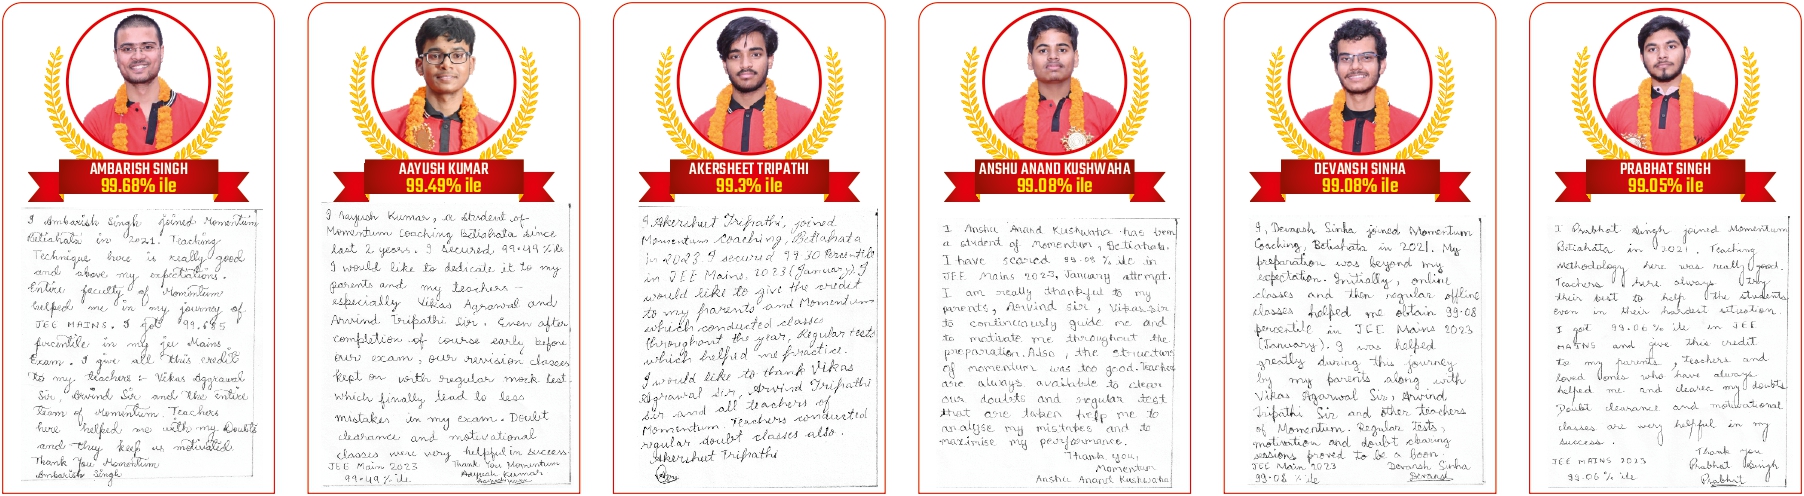 AMBARISH SINGH
99.68% ile
I Ambarish Singh joined Momentum
Betiahata in 2021. Teaching
Technique here is really good
and above my expectations.
Entire faculty of Momentum
helped me in my journey of
JEE MAINS. I got 99.685
percentile in my Jee Mains
Exam. I give all this credit
to my teachers :- Vikas Aggrawal
Sir, Arvind Sir and the entire
team of Momentum. Teachers
here helped me with my Doubts
and they keep us motivated.
Thank You Momentum
Ambarish Singh
AAYUSH KUMAR
99.49% ile
I Aayush Kumar, a student of
Momentum Coaching Betiahata since
last 2 years. I secured, 99.49 % ile
I would like to dedicate it to my
parents and my teachers -
especially Vikas Agrawal and
Arvind Tripathi Sir. Even after
completion of course early before
our exam, our revision classes
kept on with regular mock test
which finally lead to less
mistakes in my exam. Doubt
clearance and motivational
classes were very helpful in success.
JEE Mains 2023 Thank You Momentum
99.49 % ile Aayush Kumar
AKERSHEET TRIPATHI
99.3% ile
I Akersheet Tripathi, joined
Momentum Coaching, Betiahata
in 2023. I secured 99.30 Percentile
in JEE Mains. 2023 (January). I
would like to give the credit
to my parents and Momentum
which conducted classes
throughout the year, Regular tests
which helped me practice.
I would like to thank Vikas
Agrawal Sir, Arvind Tripathi
Sir and all teachers of
Momentum. Teachers conducted
regular doubt classes also.
Akersheet Tripathi
ANSHU ANAND KUSHWAHA
99.08% ile
I Anshu Anand Kushwaha has been
a student of Momentum, Betiahata.
I have scored 99.08 % ile in
JEE Mains 2023, January attempt.
I am really thankful to my
parents, Arvind sir, Vikas sir
to continuously guide me and
to motivate me throughout the
preparation. Also, the structure
of momentum was too good. Teachers
are always available to clear
our doubts and regular test
that are taken help me to
analyse my mistakes and to
maximise my performance.
Thank you,
Momentum
Anshu Anand Kushwaha
DEVANSH SINHA
99.08% ile
I, Devansh Sinha joined Momentum
Coaching, Betiahata in 2021. My
preparation was beyond my
expectation. Initially, online
classes and then regular offline
classes helped me obtain 99.08
percentile in JEE Mains 2023
(January). I was helped
greatly during this journey
by my parents along with
Vikas Agarwal Sir, Arvind
Tripathi Sir and other teachers
of Momentum. Regular Tests,
motivation and doubt clearing
sessions proved to be a boon.
JEE Main 2023 Devansh Sinha
99.08 % ile Devansh
PRABHAT SINGH
99.05% ile
I Prabhat Singh joined Momentum
Betiahata in 2021. Teaching
Methodology here was really good.
Teachers here always try
their best to help the students
even in their hardest situation.
I got 99.06 % ile in JEE
MAINS and give this credit
to my parents, teachers and
loved ones who have always
helped me and cleared my doubts.
Doubt clearance and motivational
classes are very helpful in my
success.
Thank you
JEE MAINS 2023 Prabhat Singh
99.06 % ile Prabhat